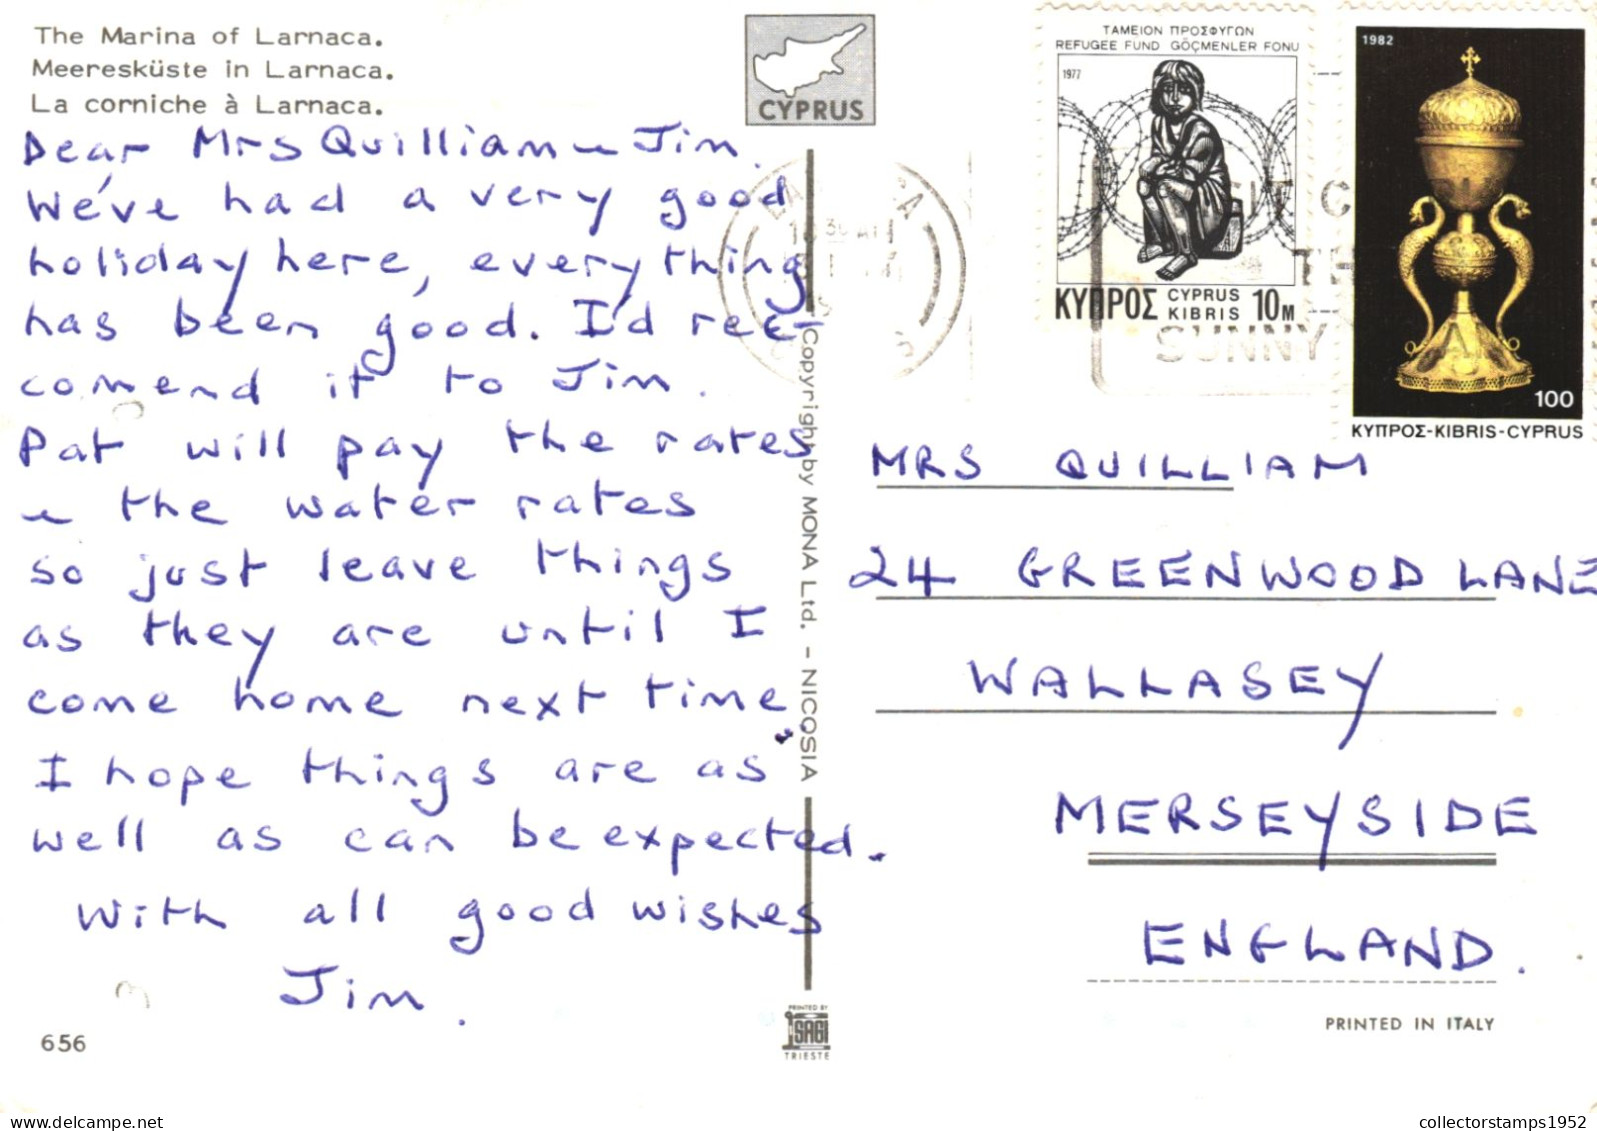 The Marina of Larnaca.
Meeresküste in Larnaca.
La corniche à Larnaca.
CYPRUS
ΤΑΜΕΙΟΝ ΠΡΟΣΦΥΓΩΝ
REFUGEE FUND GÖÇMENLER FONU
1977
ΚΥΠΡΟΣ CYPRUS KIBRIS 10M
1982
100
ΚΥΠΡΟΣ-KIBRIS-CYPRUS
SUNNY
Dear Mrs Quilliam & Jim.
We've had a very good
holiday here, everything
has been good. I'd rec-
comend it to Jim.
Pat will pay the rates
& the water rates
so just leave things
as they are until I
come home next time.
I hope things are as
well as can be expected.
With all good wishes
Jim.
Copyright by MONA Ltd. - NICOSIA
MRS QUILLIAM
24 GREENWOOD LANE
WALLASEY
MERSEYSIDE
ENGLAND.
656
PRINTED BY
SAGI
TRIESTE
PRINTED IN ITALY
collectorstamps1952